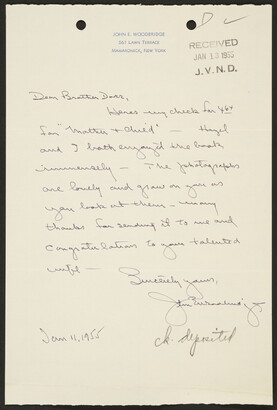 D
JOHN E. WOODBRIDGE
361 LAWN TERRACE
MAMARONECK, NEW YORK
RECEIVED
JAN 13 1955
J. V. N. D.
Dear Brother
Here's my check for
for "Mother & Child" — Hazel
and I both enjoyed the book
immensely — The photographs
are lovely and grow on you as
you look at them — many
thanks for sending it to me and
congratulations to your talented
wife —
Sincerely yours,
Jan 11, 1955
ch. deposited